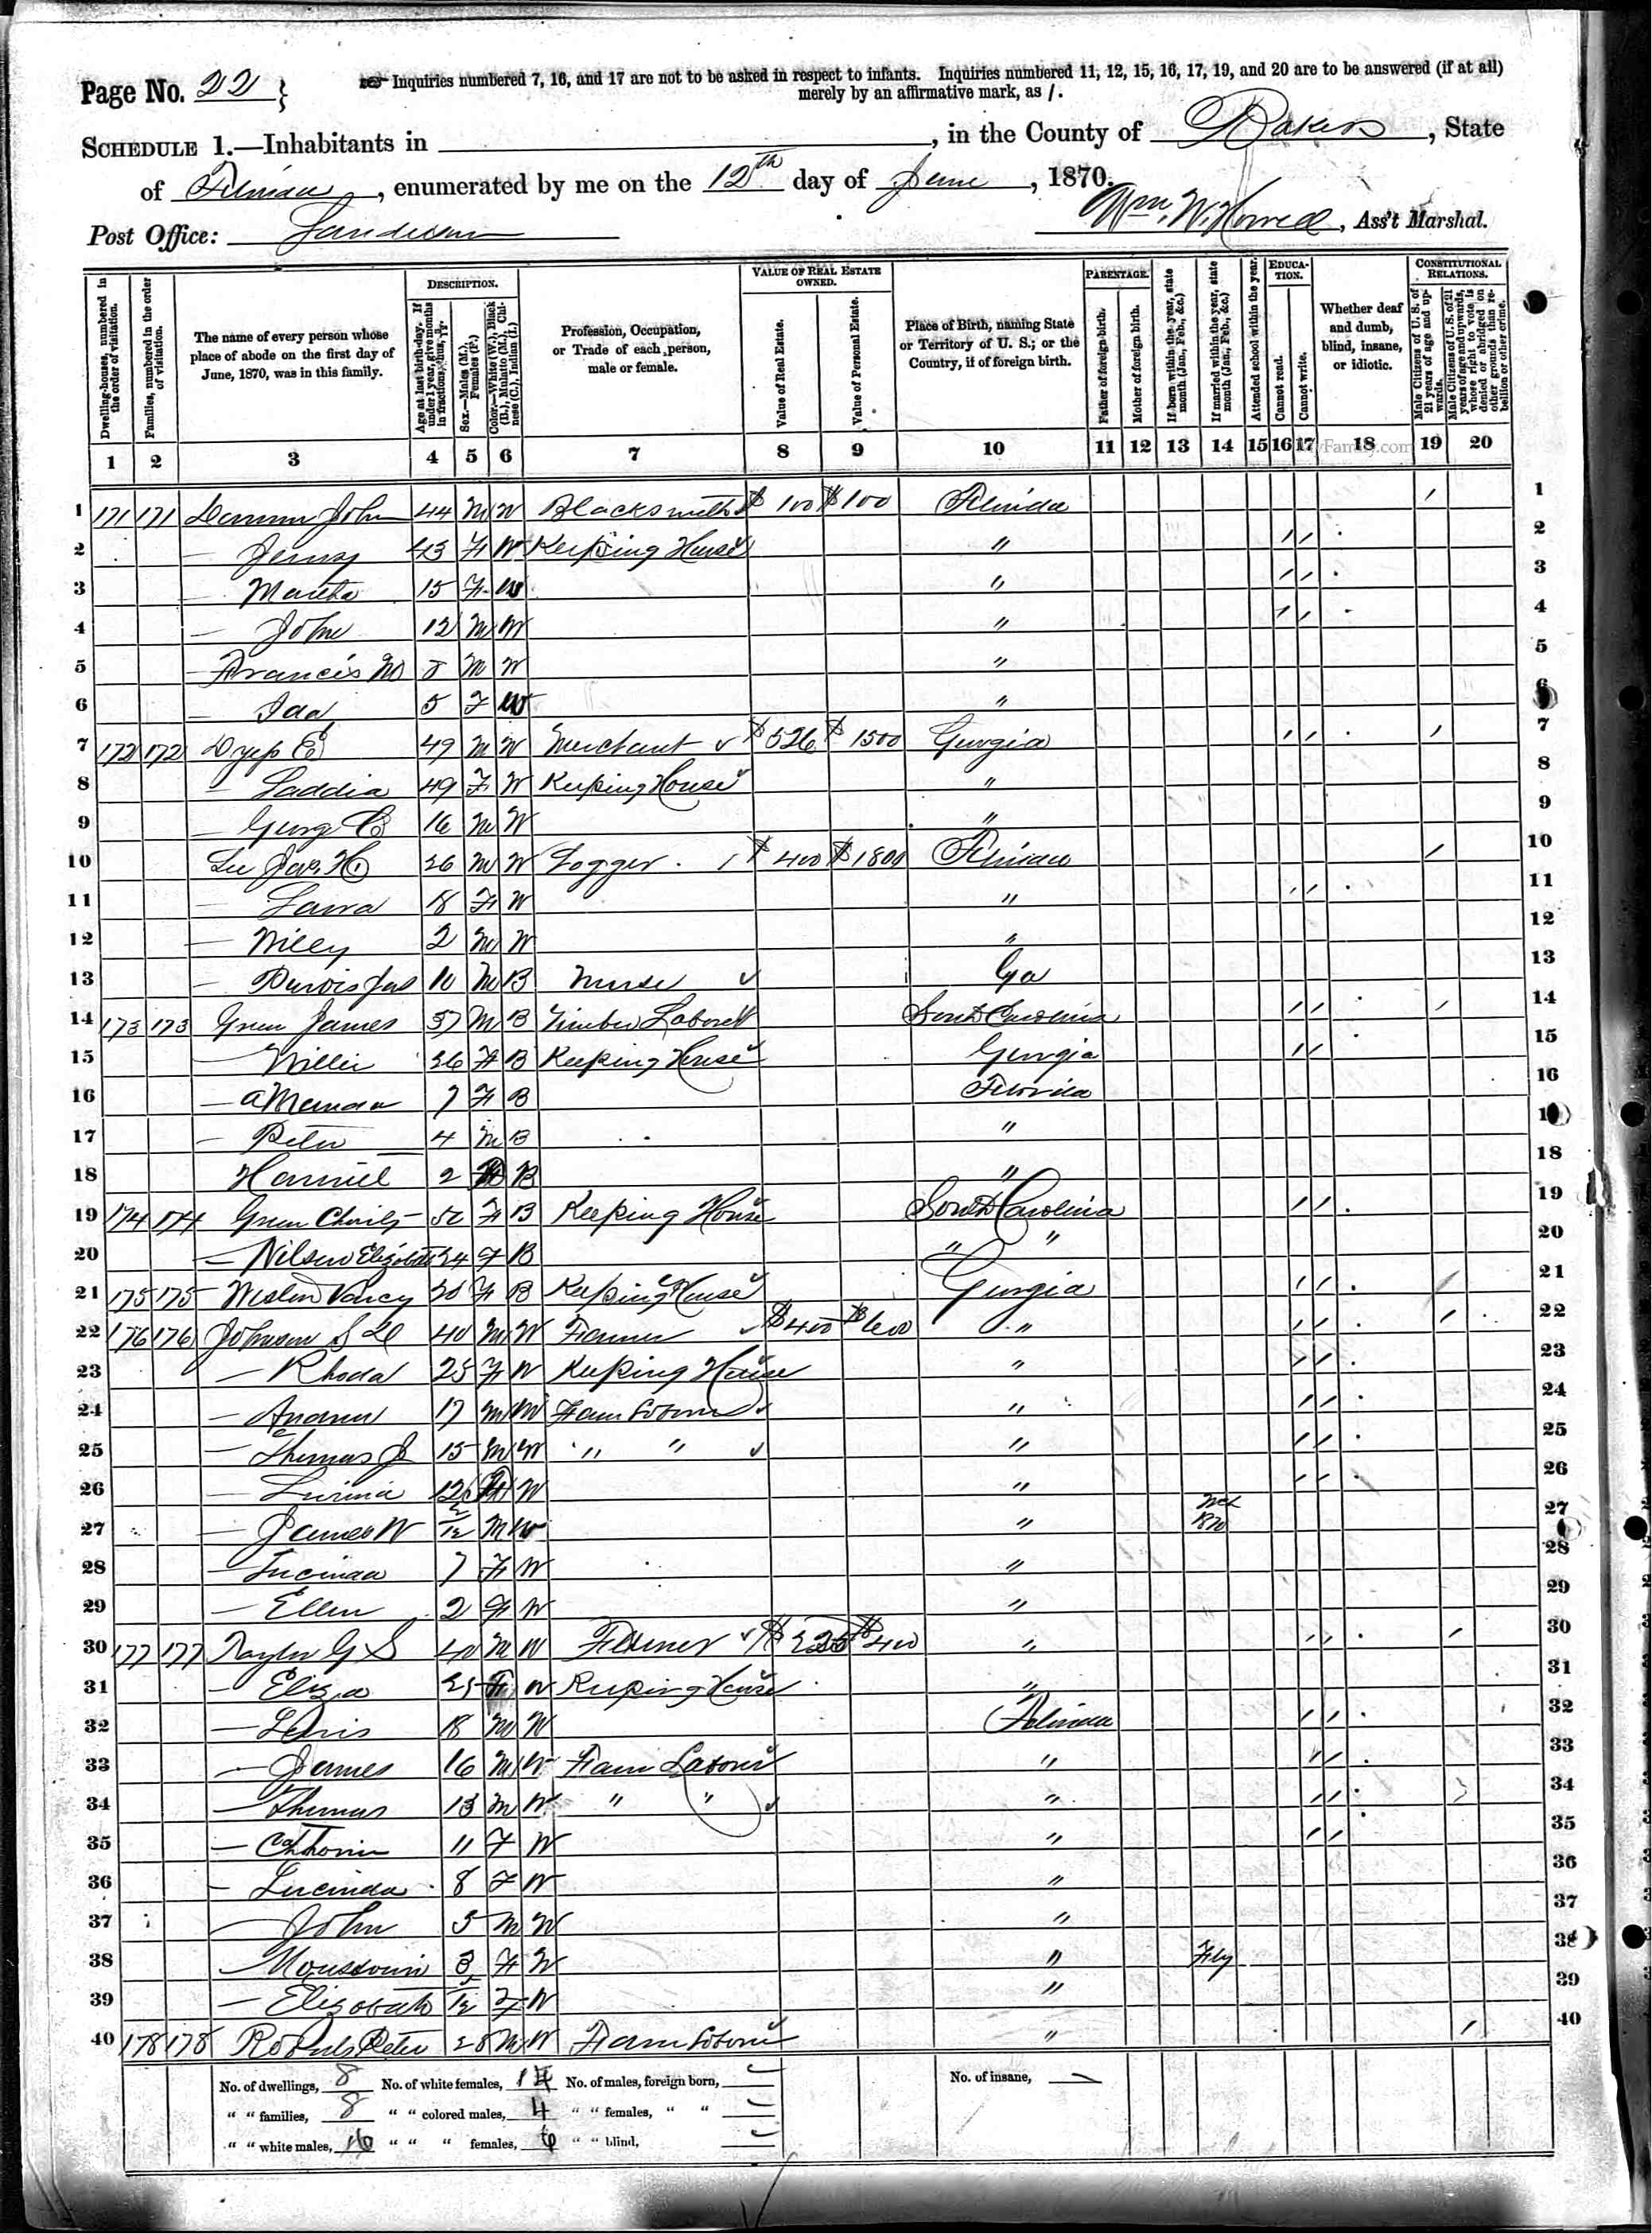 Page No. 22 } Inquiries numbered 7, 16, and 17 are not to be asked in respect to infants. Inquiries numbered 11, 12, 15, 16, 17, 19, and 20 are to be answered (if at all)
merely by an affirmative mark, as /.
SCHEDULE 1.—Inhabitants in , in the County of Baker, State
of Florida, enumerated by me on the 12th day of June, 1870.
Post Office: Sanderson Wm. W. Howell, Ass't Marshal.
Dwelling-houses, numbered in the order of visitation.
Families, numbered in the order of visitation.
The name of every person whose place of abode on the first day of June, 1870, was in this family.
DESCRIPTION.
Age at last birth-day. If under 1 year, give months in fractions, thus,
Sex.—Males (M.), Females (F.)
Color.—White (W.), Black (B.), Mulatto (M.), Chinese (C.), Indian (I.)
Profession, Occupation, or Trade of each person, male or female.
VALUE OF REAL ESTATE OWNED.
Value of Real Estate.
Value of Personal Estate.
Place of Birth, naming State or Territory of U. S.; or the Country, if of foreign birth.
PARENTAGE.
Father of foreign birth.
Mother of foreign birth.
If born within the year, state month (Jan., Feb., &c.)
If married within the year, state month (Jan., Feb., &c.)
Attended school within the year.
EDUCATION.
Cannot read.
Cannot write.
Whether deaf and dumb, blind, insane, or idiotic.
CONSTITUTIONAL RELATIONS.
Male Citizens of U. S. of 21 years of age and upwards.
Male Citizens of U. S. of 21 years of age and upwards, whose right to vote is denied or abridged on other grounds than rebellion or other crime.
1 2 3 4 5 6 7 8 9 10 11 12 13 14 15 16 17 18 19 20
1 171 171 John 44 M W Blacksmith $100 $100 Florida / 1
2 — Jenny 43 F W Keeping House " / / 2
3 — Martha 15 F W " / / 3
4 — John 12 M W " / / 4
5 — Francis M M W " 5
6 — Ida 5 F W " 6
7 172 172 E 49 M W Merchant $526 $1500 Georgia / / / 7
8 — Laddia 49 F W Keeping House " 8
9 — Georg 16 M W " 9
10 Lee Jas. H. 26 M W Logger $400 $1800 Florida / 10
11 — Laura 18 F W " / / 11
12 — Wiley 2 M W " 12
13 — 10 M B Nurse Ga 13
14 173 173 Green James 37 M B Timber Laborer South Carolina / / / 14
15 — Millie 26 F B Keeping House Georgia / / 15
16 — Amanda 7 F B Florida 16
17 — Peter 4 M B " 17
18 2 B " 18
19 174 174 Green F B Keeping House South Carolina / / 19
20 — Elizabeth 24 F B " " 20
21 175 175 F B Keeping House Georgia / / 21
22 176 176 Johnson 40 M W Farmer $400 $600 " / / / 22
23 — Rhoda 25 F W Keeping House " / / 23
24 — Andrew 17 M W Farm Laborer " / / 24
25 — Thomas J 15 M W " " " / / 25
26 — 12 F W " / / 26
27 — James W 2/12 M W " 27
28 — Lucinda 7 F W " 28
29 — Ellen 2 F W " 29
30 177 177 Taylor G S 40 M W Farmer $225 $400 " / / / 30
31 — Eliza F W Keeping House " 31
32 — Lewis 18 M W Florida / / 32
33 — James 16 M W Farm Laborer " / / 33
34 — Thomas 13 M W " " " / / 34
35 — 11 F W " / / 35
36 — Lucinda 8 F W " 36
37 — John 5 M W " 37
38 3 F W " 38
39 — Elizabeth 5/12 F W " 39
40 178 178 Roberts Peter 28 M W Farm Laborer " / 40
No. of dwellings, 8 No. of white females, 14 No. of males, foreign born, — No. of insane, —
" " families, 8 " " colored males, 4 " " females, " " —
" " white males, 16 " " " females, 6 " " blind, —